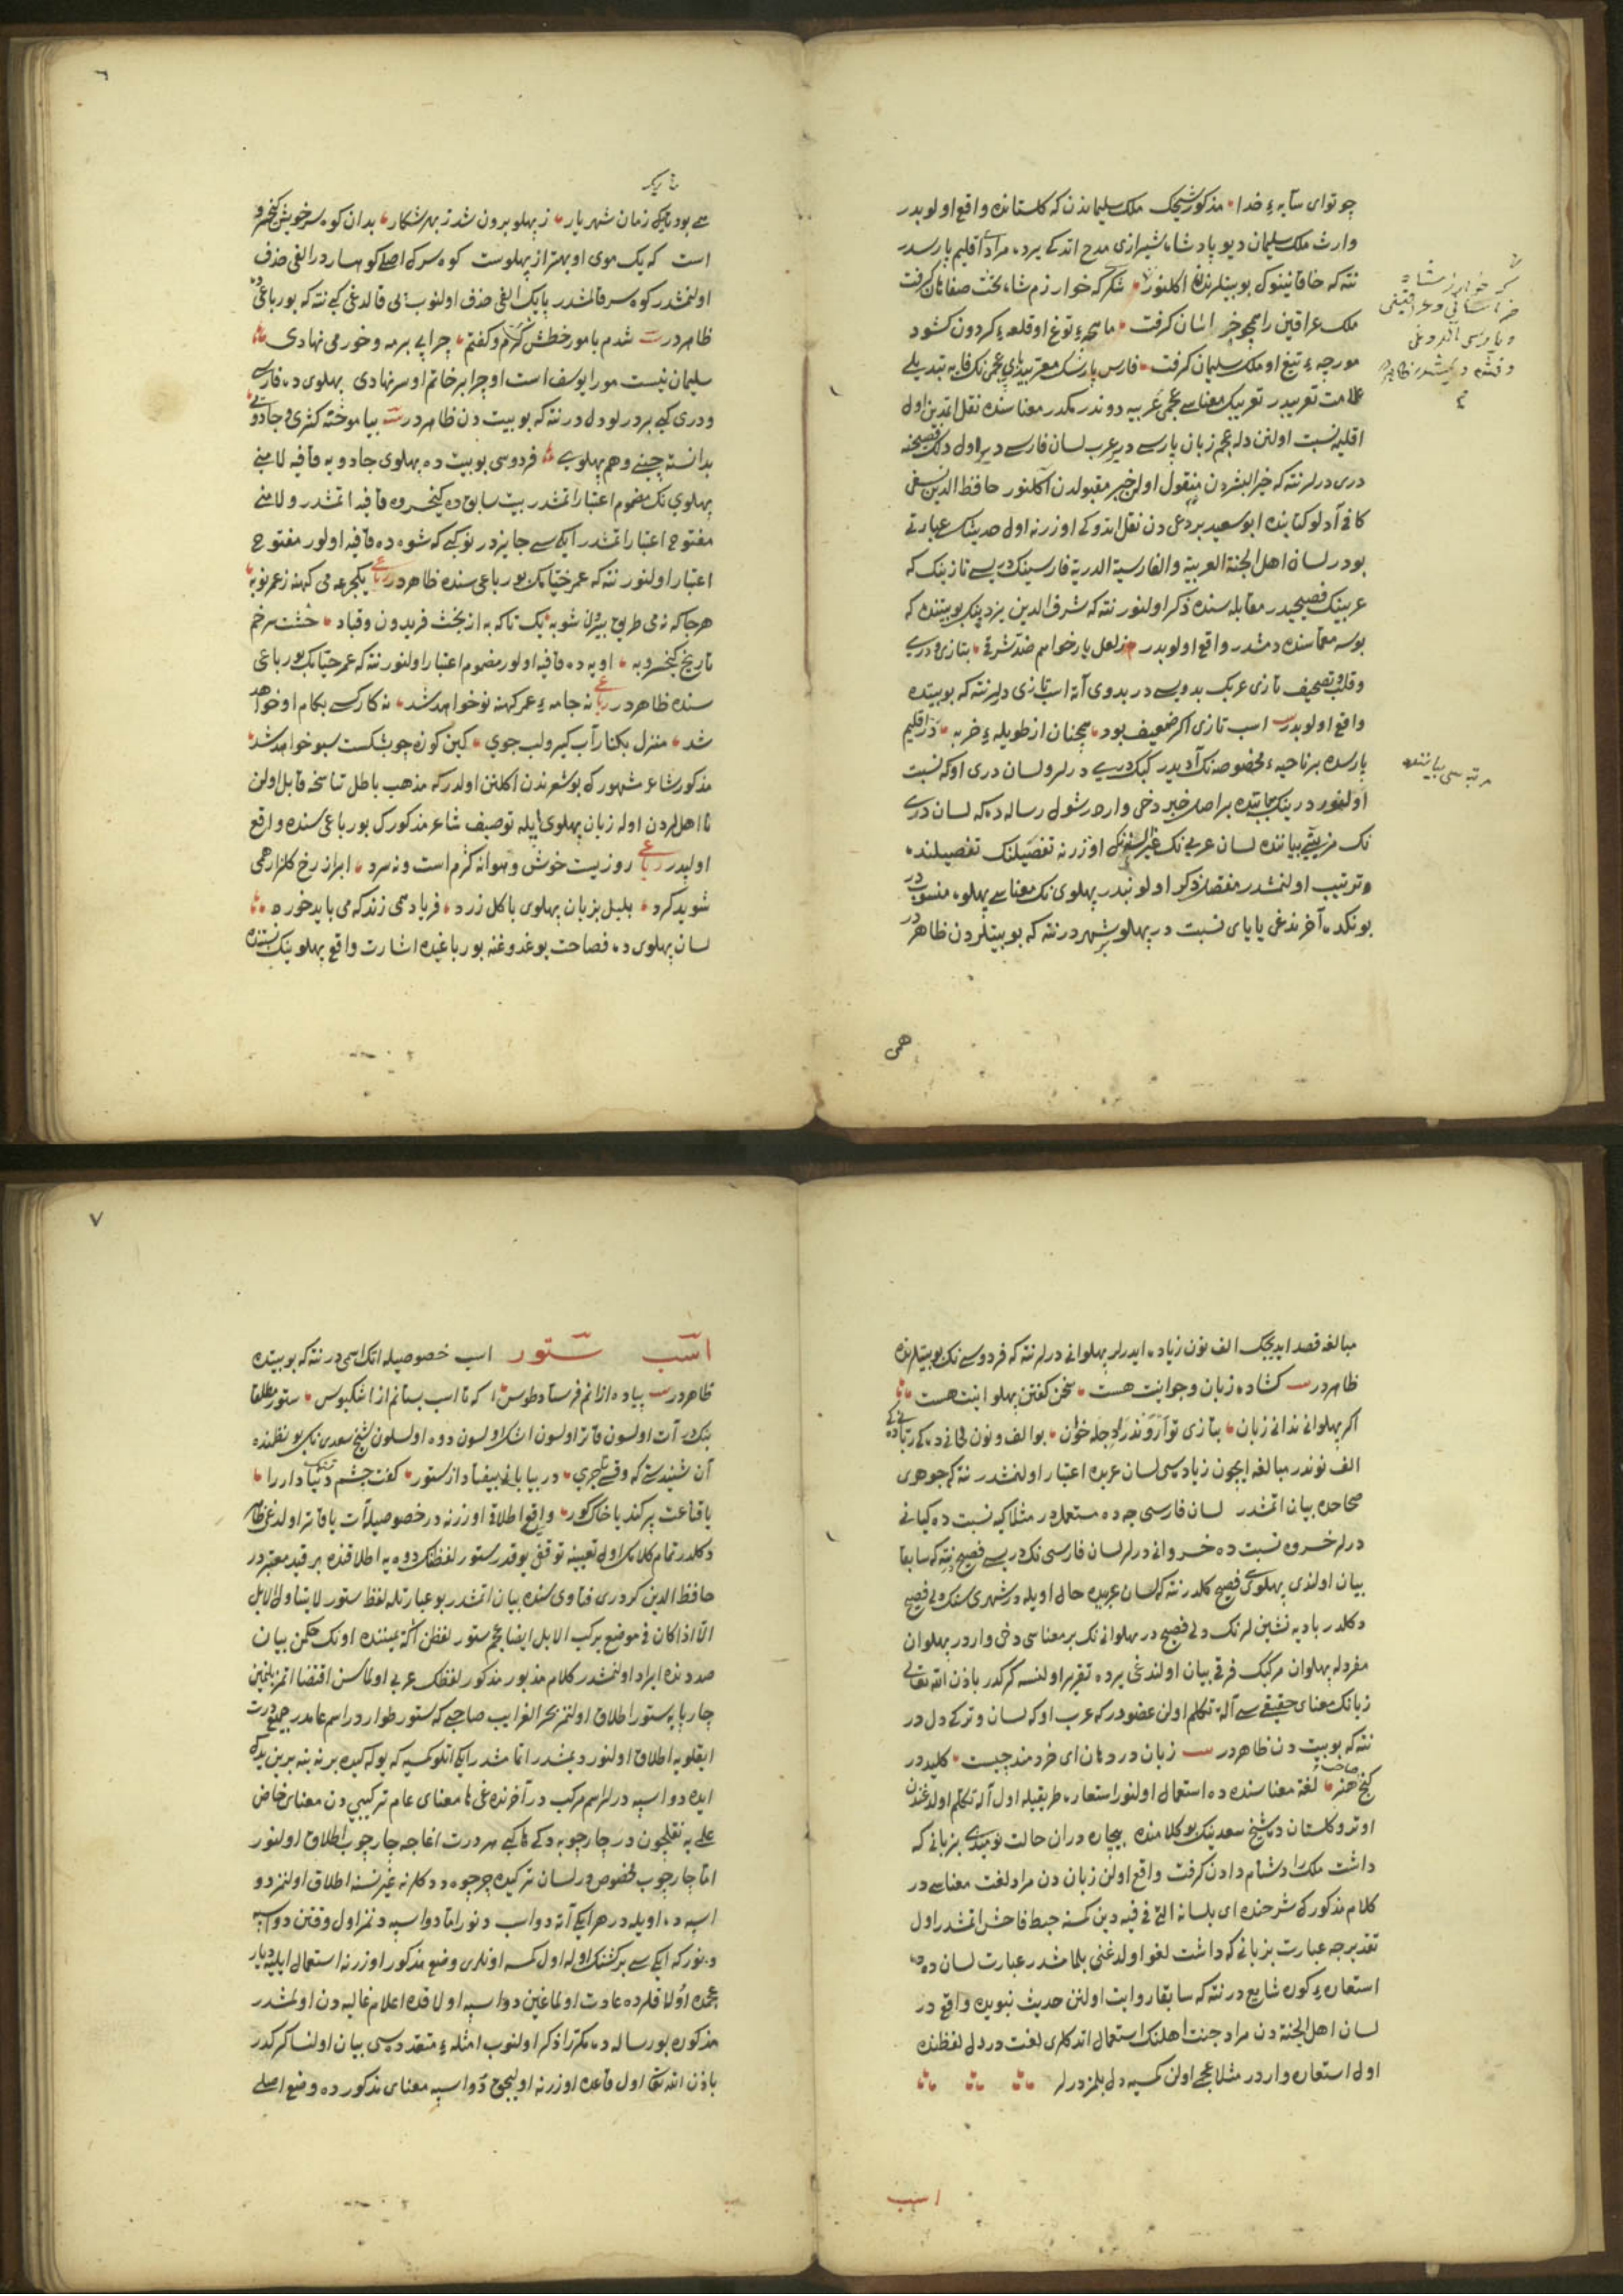 چو توای سایهٔ خدا مذکور شیخک ملک سلیماندن که کلستانده واقع اولوبدر
وارث ملک سلیمان دیو پادشاه شیرازی مدح اتدکی یرده مرادی اقلیم پارسدر
نته که خاقانینوک بو بیتلرندن اکلنور شکر که خوارزم شاه تخت صفاهان کرفت
ملک عراقین را همچو خراسان کرفت ماهچهٔ توغ او قلعهٔ کردون کشود
مورچهٔ تیغ او ملک سلیمان کرفت فارس پارسک معربیدر
علامت تعریبدر تعریبک معناسی عجمی عربیه دوندرمکدر معناسنده نقل ایدین اول
اقلیمه نسبت اولنن دله عجم زبان پارسی دیر عرب لسان فارسی دیر اول دلک فصیحنه
دری درلر نته که خیر البشردن منقول اولن خبر مقبولدن اکلنور حافظ الدین نسفی
کافی آدلو کتابنده ابو سعید بردعی دن نقل اتدوکی اوزرنه اول حدیثک عبارتی
بودر لسان اهل الجنة العربیة والفارسیة الدریة فارسینک دریسی تازینک که
عربینک فصیحیدر مقابله سنده ذکر اولنور نته که شرف الدین یزدینک بو بیتنده که
بو سه معماسنده دمشدر واقع اولوبدر ز لعل یار خواهم ضد شرقی بتازی و دری
وقلب و تصحیف تازی عربک بدویسی در بدوی آته اسب تازی دلر نته که بو بیتده
واقع اولوبدر اسب تازی اکر ضعیف بود همچنان از طویلهٔ خر به در اقلیم
پارسده بر ناحیهٔ مخصوصه نک آدیدر کبک دری درلر و لسان دری اوکه نسبت
اولنور درینک بیاننده بر اصل خبر دخی واردر شول رساله ده که لسان دری
نک مزیتی بیاننده لسان عربی نک غیر السنه نک اوزرنه تفصیلنک تفصیلنده
و ترتیب اولنمشدر مفصلا ذکر اولونبدر پهلوی نک معناسی پهلوه منسوبدر
بونکده آخرندغی یا یای نسبت در پهلو شهردر نته که بو بیتلردن ظاهر در
که خوارزمشاه
خراسانی و عراقینی
و پارسی
مرتبه سی بیاننده
همی
٦
همی بود تا یک زمان شهریار ز پهلو برون شد ز بهر شکار بدان کوه سر خویش کیخسرو
است که یک موی او بهتر از پهلوست کوه سر که اصلی کوهساردر الفی حذف
اولنمشدر کوه سر قالمشدر یا یک الفی حذف اولنوب بی قالدغی کبی نته که بو رباعیده
ظاهردر شدم با مور خطش کرم و کفتم چرا پی بر مه و خور می نهادی
سلیمان نیست مور ایوسف است او چرا بر خاتم او سر نهادی پهلوی ده فارسی
و دری کبی بر درلو دل در نته که بو بیت دن ظاهردر بیاموخته کنری و جادوی
بدانسته چینی و هم پهلوی فردوسی بو بیت ده پهلوی جادویه قافیه لامنی
پهلوی نک مضموم اعتبار اتمشدر بیت سابق ده کیخسروه قافیه اتمشدر و لامنی
مفتوح اعتبار اتمشدر ایکیسی جایزدر نو کبی که شوه ده قافیه اولور مفتوح
اعتبار اولنور نته که عمر خیامک بو رباعی سنده ظاهردر یکجرعه می کهنه ز عمر نو به
هر جا که نه می طریق بیرون شو به یک تا که به از تخت فریدون و قباد خشت سر خم
تاریخ کیخسرو به او به ده قافیه اولور مضموم اعتبار اولنور نته که عمر خیامک بو رباعی
سنده ظاهردر نه جامهٔ عمر کهنه نو خواهد شد نه کار کسی بکام او خواهد
شد منزل بکنار آب کیر و لب جوی کین کوزه چو بشکست سبو خواهد شد
مذکور شاعر مشهورک بو شعرندن اکلنن اولدر که مذهب باطل تناسخه قابل اولن
نا اهلردن اوله زبان پهلوی ایله توصیف شاعر مذکورک بو رباعی سنده واقع
اولبدر روزیست خوش و هوا نه کرم است و نه سرد ابر از رخ کلزار همی
شوید کرد بلبل بزبان پهلوی با کل زرد فریاد همی زند که می باید خورد
لسان پهلوی ده فصاحت بوغدوغنه بو رباعیده اشارت واقع پهلوینک نسبتنده
مبالغه قصد ایدیجک الف نون زیاده ایدرلر پهلوانی درلر نته که فردوسی نک بو بیتلرنده
ظاهردر کشاده زبان و جوانیت هست سخن کفتن پهلوانیت هست
اکر پهلوانی ندانی زبان بتازی تو اروند را دجله خوان بو الف و نون لحیانی ده کی رقبانی ده کی
الف نوندر مبالغه ایچون زیاده سی لسان عربده اعتبار اولنمشدر نته که جوهری
صحاحده بیان اتمشدر لسان فارسی جه ده مستعملدر مثلا کیه نسبت ده کیانی
درلر خسروه نسبت ده خسروانی درلر لسان فارسی نک دریسی فصیح نته که سابقا
بیان اولندی پهلویسی فصیح کلدر نته که لسان عربده حال اویله در شهری سنک دلی فصیح
دکلدر بادیه نشین لرنک دلی فصیح در پهلوانی نک بر معناسی دخی واردر پهلوان
مفرد له پهلوان مرکبک فرقی بیان اولندغی یرده تقریر اولنسه کرکدر باذن الله تعالی
زبانک معنای حقیقیسی آلة تکلم اولن عضودر که عرب اوکه لسان و ترکی دل در
نته که بو بیت دن ظاهردر زبان در دهان ای خردمند چیست کلید در
کنج صاحب هنر لغة معناسنده ده استعمال اولنور استعاره طریقیله اول آلة تکلم اولدغندن
اوترو کلستان ده شیخ سعدینک بو کلامنده بیچاره دران حالت نومیدی بزبانی که
داشت ملک را دشنام دادن کرفت واقع اولن زبان دن مراد لغت معناسی در
کلام مذکورک شرحنده ای بلسانه التی فی فیه دین کمسنه خبط فاحش اتمشدر اول
تقدیرجه عبارت بزبانی که داشت لغو اولدغنی بلمامشدر عبارت لسان ده ده
استعارهٔ کون شایع در نته که سابقا روایت اولنن حدیث نبویده واقع در
لسان اهل الجنة دن مراد جنت اهلنک استعمال اتدکلری لغت در دل لفظنده
اول استعاره واردر مثلا عجمی اولن کمسیه دل بلمز درلر
اسب
٧
اسب ستور اسب خصوصیله اتک اسمی در نته که بو بیتده
ظاهردر پیاده از انم فرستاد طوس که تا اسب بستانم از اشکبوس ستور مطلقا
بنکدر آت اولسون قاتر اولسون اشک اولسون دوه اولسون شیخ سعدی نک بو نظمنده
آن شنیدستی که وقتی تاجری در بیابانی بیفتاد از ستور کفت چشم تنک دنیا دار را
یا قناعت پر کند یا خاک کور واقع اطلاق اوزرنه در خصوصیله آت یا قاتر اولدغی ظاهر
دکلدر تمام کلامک اولی تعیینه توقفی یوقدر ستور لفظنک دوه یه اطلاقنده بر قید معتبردر
حافظ الدین کردری فتاوی سنده بیان اتمشدر بو عبارتله لفظ ستور لا یتناول الابل
الا اذا کان فی موضع یرکب الابل ایضا عجم ستور لفظن اکثر یمیننده اونک حکمن بیان
صددنده ایراد اولنمشدر کلام مذبور مذکور لفظک عربی اولماسن اقتضا اتمز بلنمین
چارپایه ستور اطلاق اولنمز بحر الغرایب صاحبی که ستور طواردر اسم عامدر جمیع درت
ایقلویه اطلاق اولنور دیمشدر اتا مشدر ایکی اتلو کمسیه که یوله کیده برنه بنه برین یده
ایده دو اسپه درلر اسم مرکب در آخرنده غی ها معنای عام ترکیبی دن معنای خاص
علمی یه نقلیچون در چارچوبه ده کی ها کبی هر درت اغاجه چارچوب اطلاق اولنور
اما چارچوب مخصوص در لسان ترکیده چرچوه در دکانه غیر نسنه اطلاق اولنمز دو
اسپه ده اویله در هر ایکی آته دو اسب دنور اما دو اسپه دنمز اول وقتن دو اسپه
دنور که ایکیسی بر کشنک اوله اول کمسه اونلری وضع مذکور اوزرنه استعمال ایلیه دیار
عجمده اولاقلرده عادت اولماغین دو اسپه اولاقده اعلام غالبه دن اولمشدر
مذکوره بو رساله ده مکررا ذکر اولنوب امثلهٔ متعدده سی بیان اولنسا کرکدر
باذن الله تعالی اول قاعده اوزرنه اولیجق دو اسپه معنای مذکورده وضع اصلی